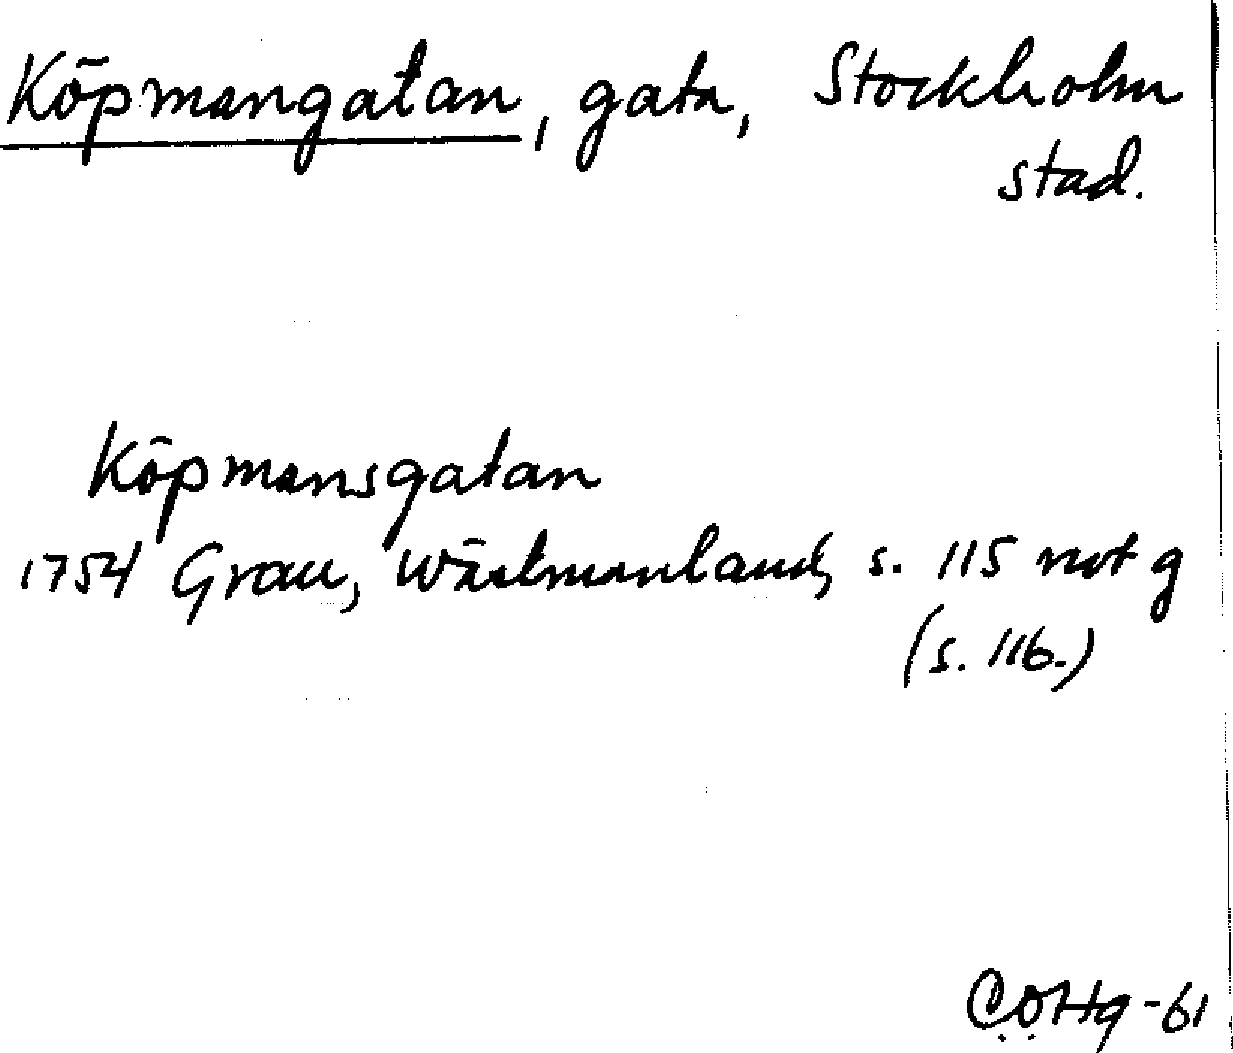 Köpmangatan, gata, Stockholm
stad.
Köpmansgatan
1754 Grau, Wästmanland, s. 115 not g
(s. 116.)
C.O.Hg-61